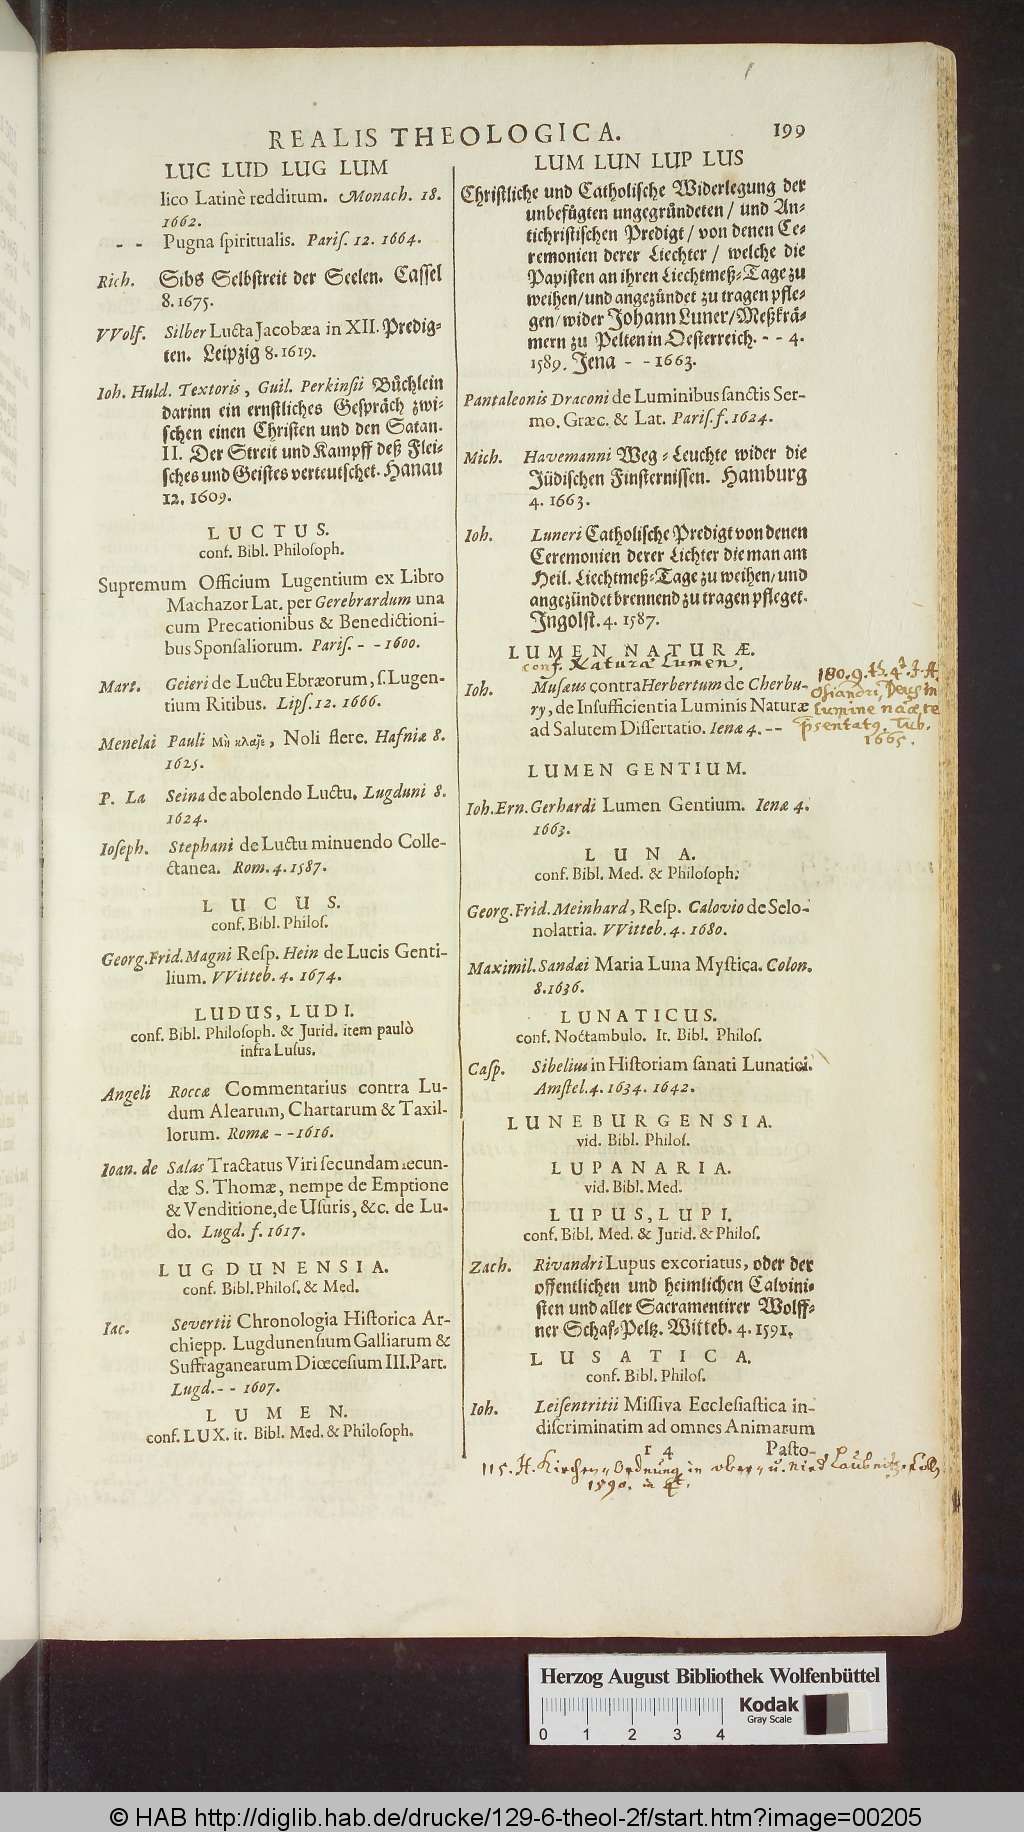 REALIS THEOLOGICA. 199
LUC LUD LUG LUM
lico Latinè redditum. Monach. 18.
1662.
- - Pugna ſpiritualis. Pariſ. 12. 1664.
Rich. Sibs Selbſtreit der Seelen. Caſſel
8. 1675.
VVolf. Silber Lucta Jacobæa in XII. Predig⸗
ten. Leipzig 8. 1619.
Ioh. Huld. Textoris, Guil. Perkinſii Büchlein
darinn ein ernſtliches Geſpräch zwi⸗
ſchen einen Chriſten und den Satan.
II. Der Streit und Kampff deß Flei⸗
ſches und Geiſtes verteutſchet. Hanau
12. 1609.
LUCTUS.
conf. Bibl. Philoſoph.
Supremum Officium Lugentium ex Libro
Machazor Lat. per Gerebrardum una
cum Precationibus & Benedictioni-
bus Sponſaliorum. Pariſ. - - 1600.
Mart. Geieri de Luctu Ebræorum, ſ. Lugen-
tium Ritibus. Lipſ. 12. 1666.
Menelai Pauli Μὴ κλαῖε, Noli flere. Hafniæ 8.
1625.
P. La Seina de abolendo Luctu. Lugduni 8.
1624.
Ioſeph. Stephani de Luctu minuendo Colle-
ctanea. Rom. 4. 1587.
LUCUS.
conf. Bibl. Philoſ.
Georg. Frid. Magni Reſp. Hein de Lucis Genti-
lium. VVitteb. 4. 1674.
LUDUS, LUDI.
conf. Bibl. Philoſoph. & Jurid. item paulò
infra Luſus.
Angeli Roccæ Commentarius contra Lu-
dum Alearum, Chartarum & Taxil-
lorum. Romæ - - 1616.
Ioan. de Salas Tractatus Viri ſecundam ſecun-
dæ S. Thomæ, nempe de Emptione
& Venditione, de Uſuris, &c. de Lu-
do. Lugd. f. 1617.
LUGDUNENSIA.
conf. Bibl. Philoſ. & Med.
Iac. Severtii Chronologia Hiſtorica Ar-
chiepp. Lugdunenſium Galliarum &
Suffraganearum Diœceſium III. Part.
Lugd. - - 1607.
LUMEN.
conf. LUX. it. Bibl. Med. & Philoſoph.
LUM LUN LUP LUS
Chriſtliche und Catholiſche Widerlegung der
unbefügten ungegründeten / und An⸗
tichriſtiſchen Predigt / von denen Ce⸗
remonien derer Liechter / welche die
Papiſten an ihren Liechtmeß⸗Tage zu
weihen / und angezündet zu tragen pfle⸗
gen / wider Johann Luner / Meßkrä⸗
mern zu Pelten in Oeſterreich. - - 4.
1589. Jena - - 1663.
Pantaleonis Draconi de Luminibus ſanctis Ser-
mo. Græc. & Lat. Pariſ. f. 1624.
Mich. Havemanni Weg⸗Leuchte wider die
Jüdiſchen Finſterniſſen. Hamburg
4. 1663.
Ioh. Luneri Catholiſche Predigt von denen
Ceremonien derer Lichter die man am
Heil. Liechtmeß⸗Tage zu weihen / und
angezündet brennend zu tragen pfleget.
Ingolſt. 4. 1587.
LUMEN NATURÆ.
conf. Naturæ Lumen.
Ioh. Muſæus contra Herbertum de Cherbu-
ry, de Inſufficientia Luminis Naturæ
ad Salutem Diſſertatio. Ienæ 4. - -
180. 9. th. 4º J. A.
Oſiandri, Deus in
lumine naæ re
pſentatg. Tub.
1665.
LUMEN GENTIUM.
Ioh. Ern. Gerhardi Lumen Gentium. Ienæ 4.
1663.
LUNA.
conf. Bibl. Med. & Philoſoph.
Georg. Frid. Meinhard, Reſp. Calovio de Selo-
nolatria. VVitteb. 4. 1680.
Maximil. Sandæi Maria Luna Myſtica. Colon.
8. 1636.
LUNATICUS.
conf. Noctambulo. It. Bibl. Philoſ.
Caſp. Sibelius in Hiſtoriam ſanati Lunatici.
Amſtel. 4. 1634. 1642.
LUNEBURGENSIA.
vid. Bibl. Philoſ.
LUPANARIA.
vid. Bibl. Med.
LUPUS, LUPI.
conf. Bibl. Med. & Jurid. & Philoſ.
Zach. Rivandri Lupus excoriatus, oder der
offentlichen und heimlichen Calvini⸗
ſten und aller Sacramentirer Wolff⸗
ner Schaf⸗Peltz. Witteb. 4. 1591.
LUSATICA.
conf. Bibl. Philoſ.
Ioh. Leiſentritii Miſſiva Eccleſiaſtica in-
diſcriminatim ad omnes Animarum
r 4 Paſto-
115. H. Kirchen-Ordnung in ober- u. Nied
1590. in 4t.
Herzog August Bibliothek Wolfenbüttel
0 1 2 3 4
Kodak
Gray Scale
© HAB http://diglib.hab.de/drucke/129-6-theol-2f/start.htm?image=00205